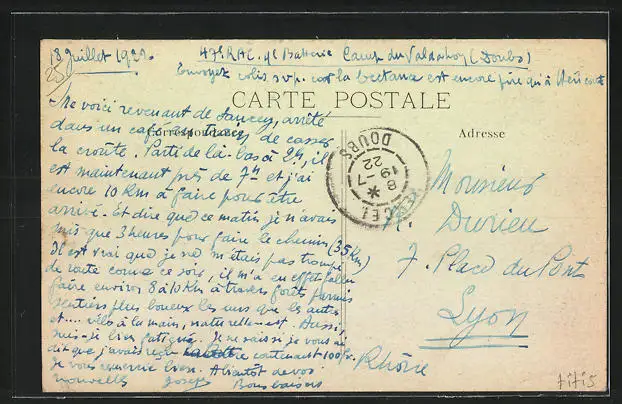 18 Juillet 1922. 47e R.A.C. 9e Batterie Camp du Valdahon (Doubs)
25
Envoyez colis s.v.p. car la bectance est encore pire qu'à
CARTE POSTALE
Correspondance
Adresse
Me voici revenant de Sancey, arrêté
dans un café en train de casser
la croûte. Parti de là-bas à 2h, il
est maintenant près de 7h et j'ai
encore 10 Km à faire pour être
arrivé. Et dire que ce matin je n'avais
mis que 3 heures pour faire le chemin (35 Km)
Il est vrai que je ne m'étais pas trompé
de route comme ce soir, il m'a en effet fallu
faire environ 8 à 10 Km à travers forêts parmi
sentiers plus boueux les uns que les autres
et.... vélo à la main, naturellement. Aussi,
suis-je bien fatigué. Je ne sais si je vous ai
dit que j'avais reçu lettre contenant 100 f.
Je vous remercie bien. A bientôt de vos
nouvelles Joseph Bons baisers
DOUBS
19-7
22
Monsieur
M. Durieu
7. Place du Pont
Lyon
Rhône
7175